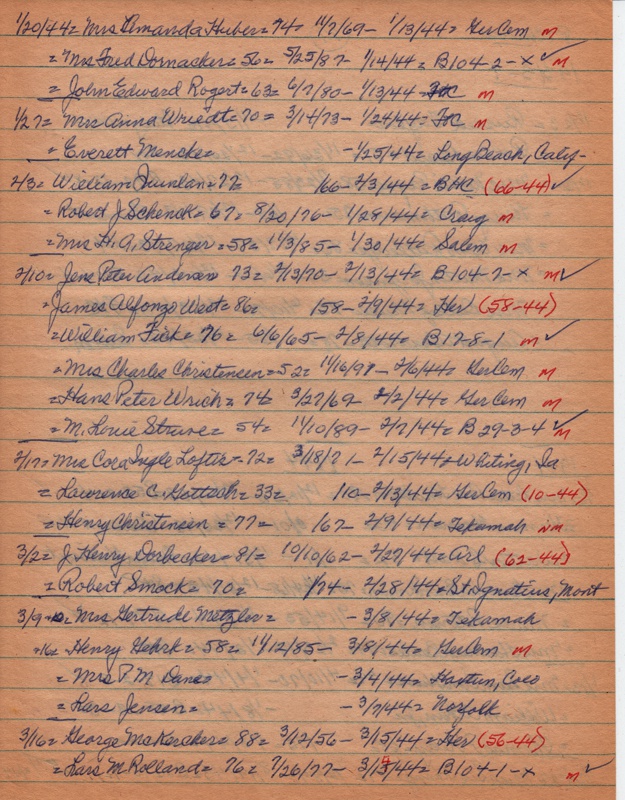 1/20/44 = Mrs Amanda Huber = 74 = 11/7/69 - 1/13/44 = GerCem m
= Mrs Fred Dornacker = 56 = 5/25/87 - 1/14/44 = B104-2-x m ✓
= John Edward Rogert = 63 = 6/7/80 - 1/13/44 = m
1/27 = Mrs Anna Wriedt = 70 = 3/14/73 - 1/24/44 = m
= Everett Mencke = - 1/25/44 = Long Beach, Calif-
2/3 = William Quinlan = 77 166 - 2/3/44 = BHC (66-44) ✓
= Robert J Schenck = 67 = 8/20/76 - 1/28/44 = Craig m
= Mrs H. A. Strenger = 58 = 11/3/85 - 1/30/44 = Salem m
2/10 = Jens Peter Andersen 73 = 2/13/70 - 2/13/44 = B104-7-x m ✓
= James Alfonzo West = 86 = 158 - 2/9/44 = Her (58-44)
= William Fick = 76 = 6/6/65 - 2/8/44 = B17-8-1 m ✓
= Mrs Charles Christensen = 52 = 11/16/91 - 2/6/44 = GerCem m
= Hans Peter Wrich = 74 = 3/27/69 - 2/2/44 = GerCem m
= M. Louie Struve = 54 = 11/10/89 - 2/7/44 = B29-3-4 m ✓
2/17 = Mrs Cora Ingle Loftis = 72 = 3/18/71 - 2/15/44 = Whiting, Ia
= Lawrence C. Gottsch = 33 = 110 - 2/13/44 = GerCem (10-44)
= Henry Christensen = 77 = 167 - 2/9/44 = Tekamah nm
3/2 = J. Henry Dorbecker = 81 = 10/10/62 - 2/27/44 = Arl (62-44)
= Robert Smock = 70 = 174 - 2/28/44 = St Ignatius, Mont
3/9 = Mrs Gertrude Metzler = - 3/8/44 = Tekamah
= Henry Gehrk = 58 = 11/12/85 - 3/8/44 = GerCem m
= Mrs P. M. Dane = - 3/4/44 = Haxtun, Colo
= Lars Jensen = - 3/7/44 = Norfolk
3/16 = George McKercher = 88 = 3/12/56 - 3/15/44 = Her (56-44)
= Lars M Rolland = 76 = 7/26/77 - 44 = B104-1-x m ✓